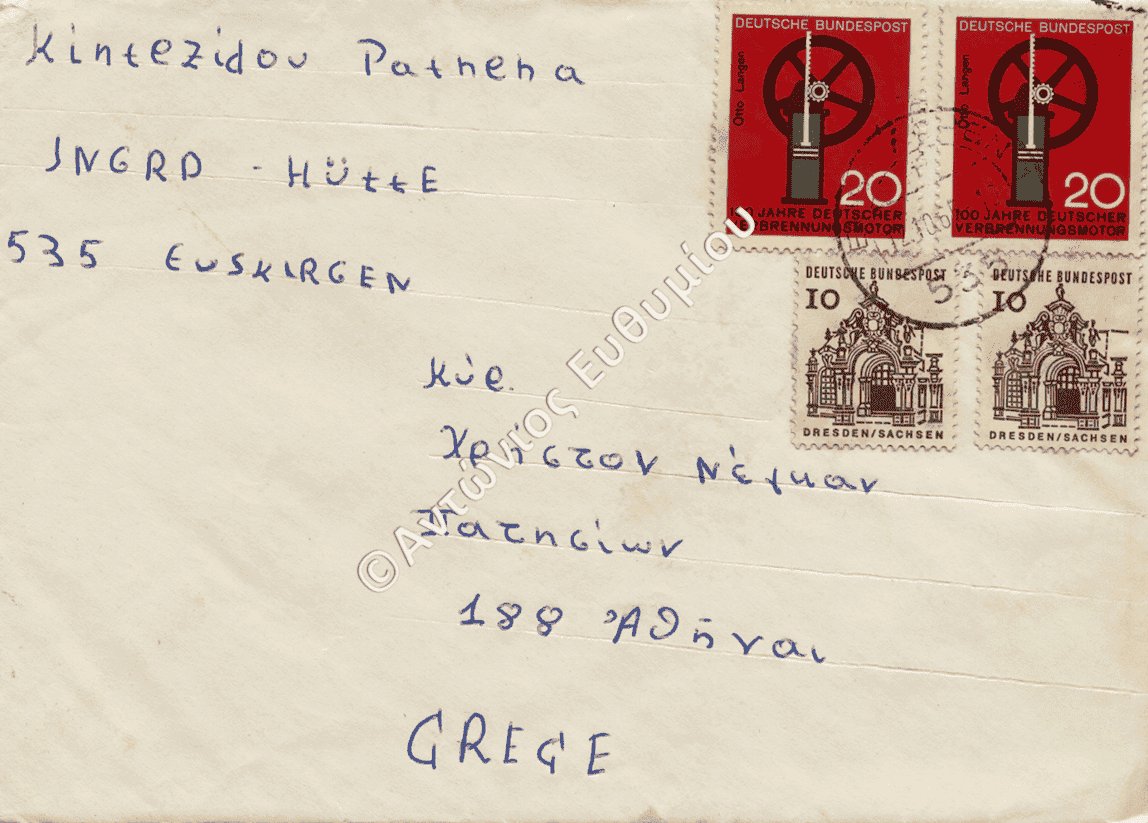 Kintezidou Patnena
INGRD - HÜttE
535 EUSKIRGEN
DEUTSCHE BUNDESPOST
Otto Langen
20
100 JAHRE DEUTSCHER
VERBRENNUNGSMOTOR
DEUTSCHE BUNDESPOST
Otto Langen
20
100 JAHRE DEUTSCHER
VERBRENNUNGSMOTOR
535
DEUTSCHE BUNDESPOST
10
DRESDEN/SACHSEN
DEUTSCHE BUNDESPOST
10
DRESDEN/SACHSEN
Κύρ.
Χρήστον
Πατησίων
188 Ἀθῆναι
GREGE
©Αντώνιος Ευθυμίου